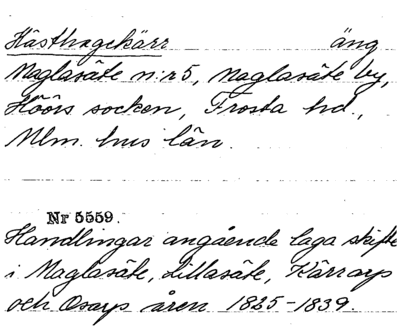 Hästhagekärr äng
Maglasäte n:r 5, Maglasäte by,
Höörs socken, Frosta hd.,
Mlm. hus län.
Nr 5559.
Handlingar angående laga skifte
i Maglasäte, Lillasäte, Kärrarp
och Osarp åren 1835-1839.